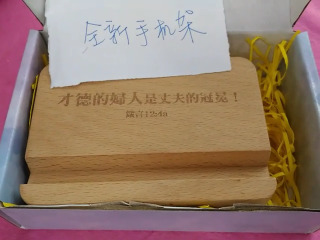 全新手机架
才德的婦人是丈夫的冠冕！
箴言12:4a